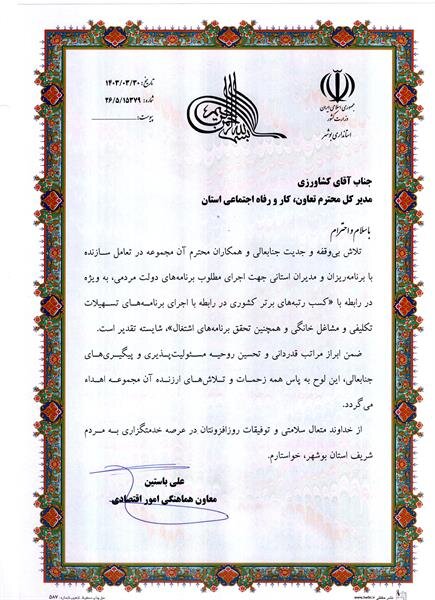 جمهوری اسلامی ایران
وزارت کشور
استانداری بوشهر
بسم الله الرحمن الرحیم
تاریخ: ۱۴۰۳/۰۳/۳۰
شماره: ۲۶/۵/۱۵۳۷۹
پیوست:
جناب آقای کشاورزی
مدیر کل محترم تعاون، کار و رفاه اجتماعی استان
باسلام و احترام
تلاش بی‌وقفه و جدیت جنابعالی و همکاران محترم آن مجموعه در تعامل سازنده
با برنامه‌ریزان و مدیران استانی جهت اجرای مطلوب برنامه‌های دولت مردمی، به ویژه
در رابطه با «کسب رتبه‌های برتر کشوری در رابطه با اجرای برنامه‌های تسهیلات
تکلیفی و مشاغل خانگی و همچنین تحقق برنامه‌های اشتغال»، شایسته تقدیر است.
ضمن ابراز مراتب قدردانی و تحسین روحیه مسئولیت‌پذیری و پیگیری‌های
جنابعالی، این لوح به پاس همه زحمات و تلاش‌های ارزنده آن مجموعه اهداء
می‌گردد.
از خداوند متعال سلامتی و توفیقات روزافزونتان در عرصه خدمتگزاری به مردم
شریف استان بوشهر، خواستارم.
علی باستین
معاون هماهنگی امور اقتصادی